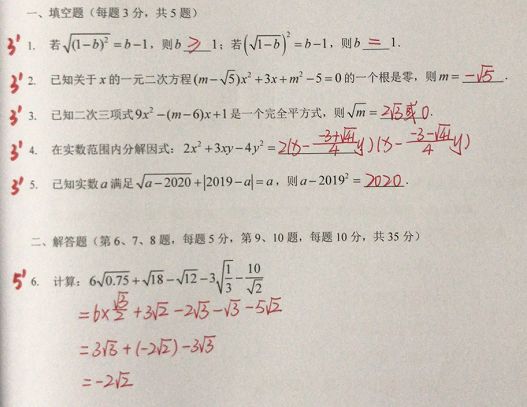 一、填空题（每题3分，共5题）
3' 1. 若√(1-b)² = b-1，则b ≥ 1；若(√1-b)² = b-1，则b = 1.
3' 2. 已知关于x的一元二次方程(m-√5)x²+3x+m²-5=0的一个根是零，则m= -√5.
3' 3. 已知二次三项式9x²-(m-6)x+1是一个完全平方式，则√m= 2√3或0.
3' 4. 在实数范围内分解因式：2x²+3xy-4y²= 2(x- (-3+√41)/4 y)(x- (-3-√41)/4 y)
3' 5. 已知实数a满足√a-2020+|2019-a|=a，则a-2019²= 2020.
二、解答题（第6、7、8题，每题5分，第9、10题，每题10分，共35分）
5' 6. 计算：6√0.75+√18-√12-3√(1/3)-10/√2
=6×√3/2+3√2-2√3-√3-5√2
=3√3+(-2√2)-3√3
=-2√2